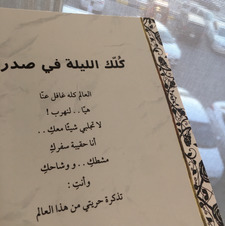 كُنْكَ الليلة في صدر
العالم كله غافل عنّا
هيّا.. لنهرب !
لا تجلبي شيئًا معكِ..
أنا حقيبة سفركِ
مشطكِ.. و وشاحكِ
وأنتِ :
تذكرة حريتي من هذا العالم